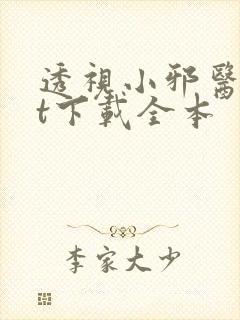 透視小邪醫
t下載全本
李家大少